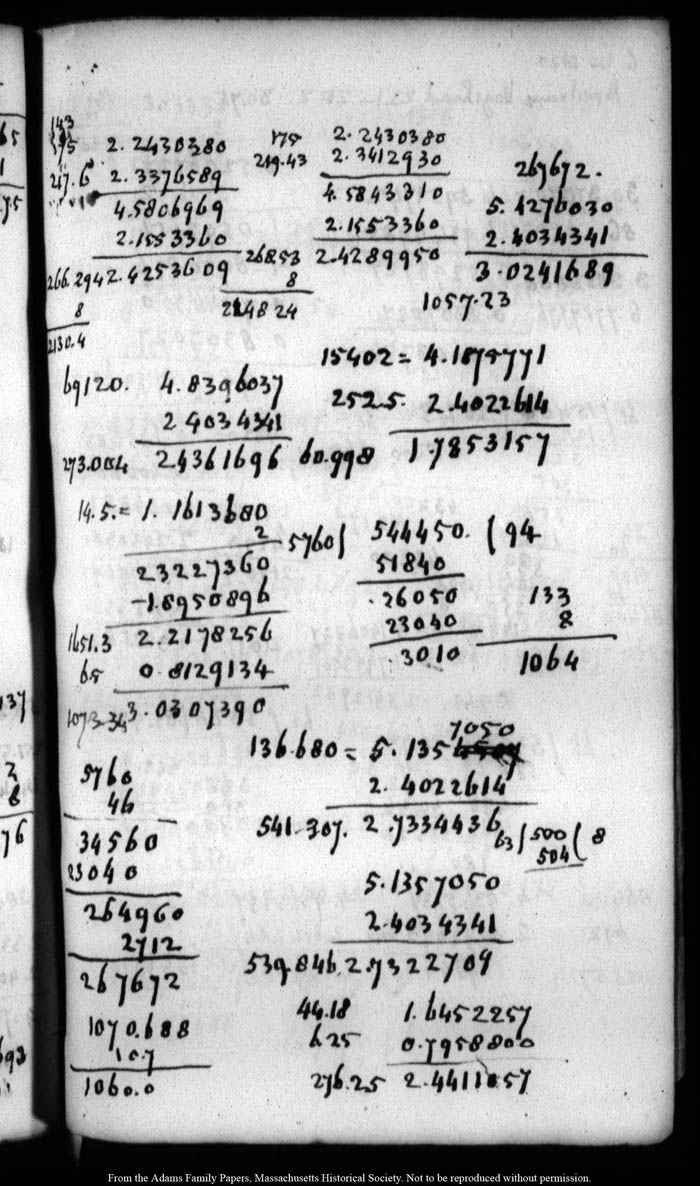 143
175 2.2430380
217.6 2.3376589
4.5806969
2.1553360
266.294 2.4253609
8
2130.4
175 2.2430380
219.43 2.3412930
4.5843310
2.1553360
26853 2.4289950
8
214824
267672.
5.4276030
2.4034341
3.0241689
1057.23
69120. 4.8396037
2.4034341
273.004 2.4361696
15402 = 4.1875771
252.5 2.4022614
60.998 1.7853157
14.5. = 1.1613680
2
23227360
-1.8950896
1651.3 2.2178256
65 0.8129134
1073.34 3.0307390
5760 | 544450. ( 94
51840
.26050
23040
3010
133
8
1064
7050
136.680 = 5.135
2.4022614
541.307. 2.7334436
63 / 500 ( 8
504
5760
46
34560
23040
264960
2712
267672
1070.688
10.7
1060.0
5.1357050
2.4034341
539.846. 2.7322709
44.18 1.6452257
6.25 0.7958800
276.25 2.4411057
From the Adams Family Papers, Massachusetts Historical Society. Not to be reproduced without permission.